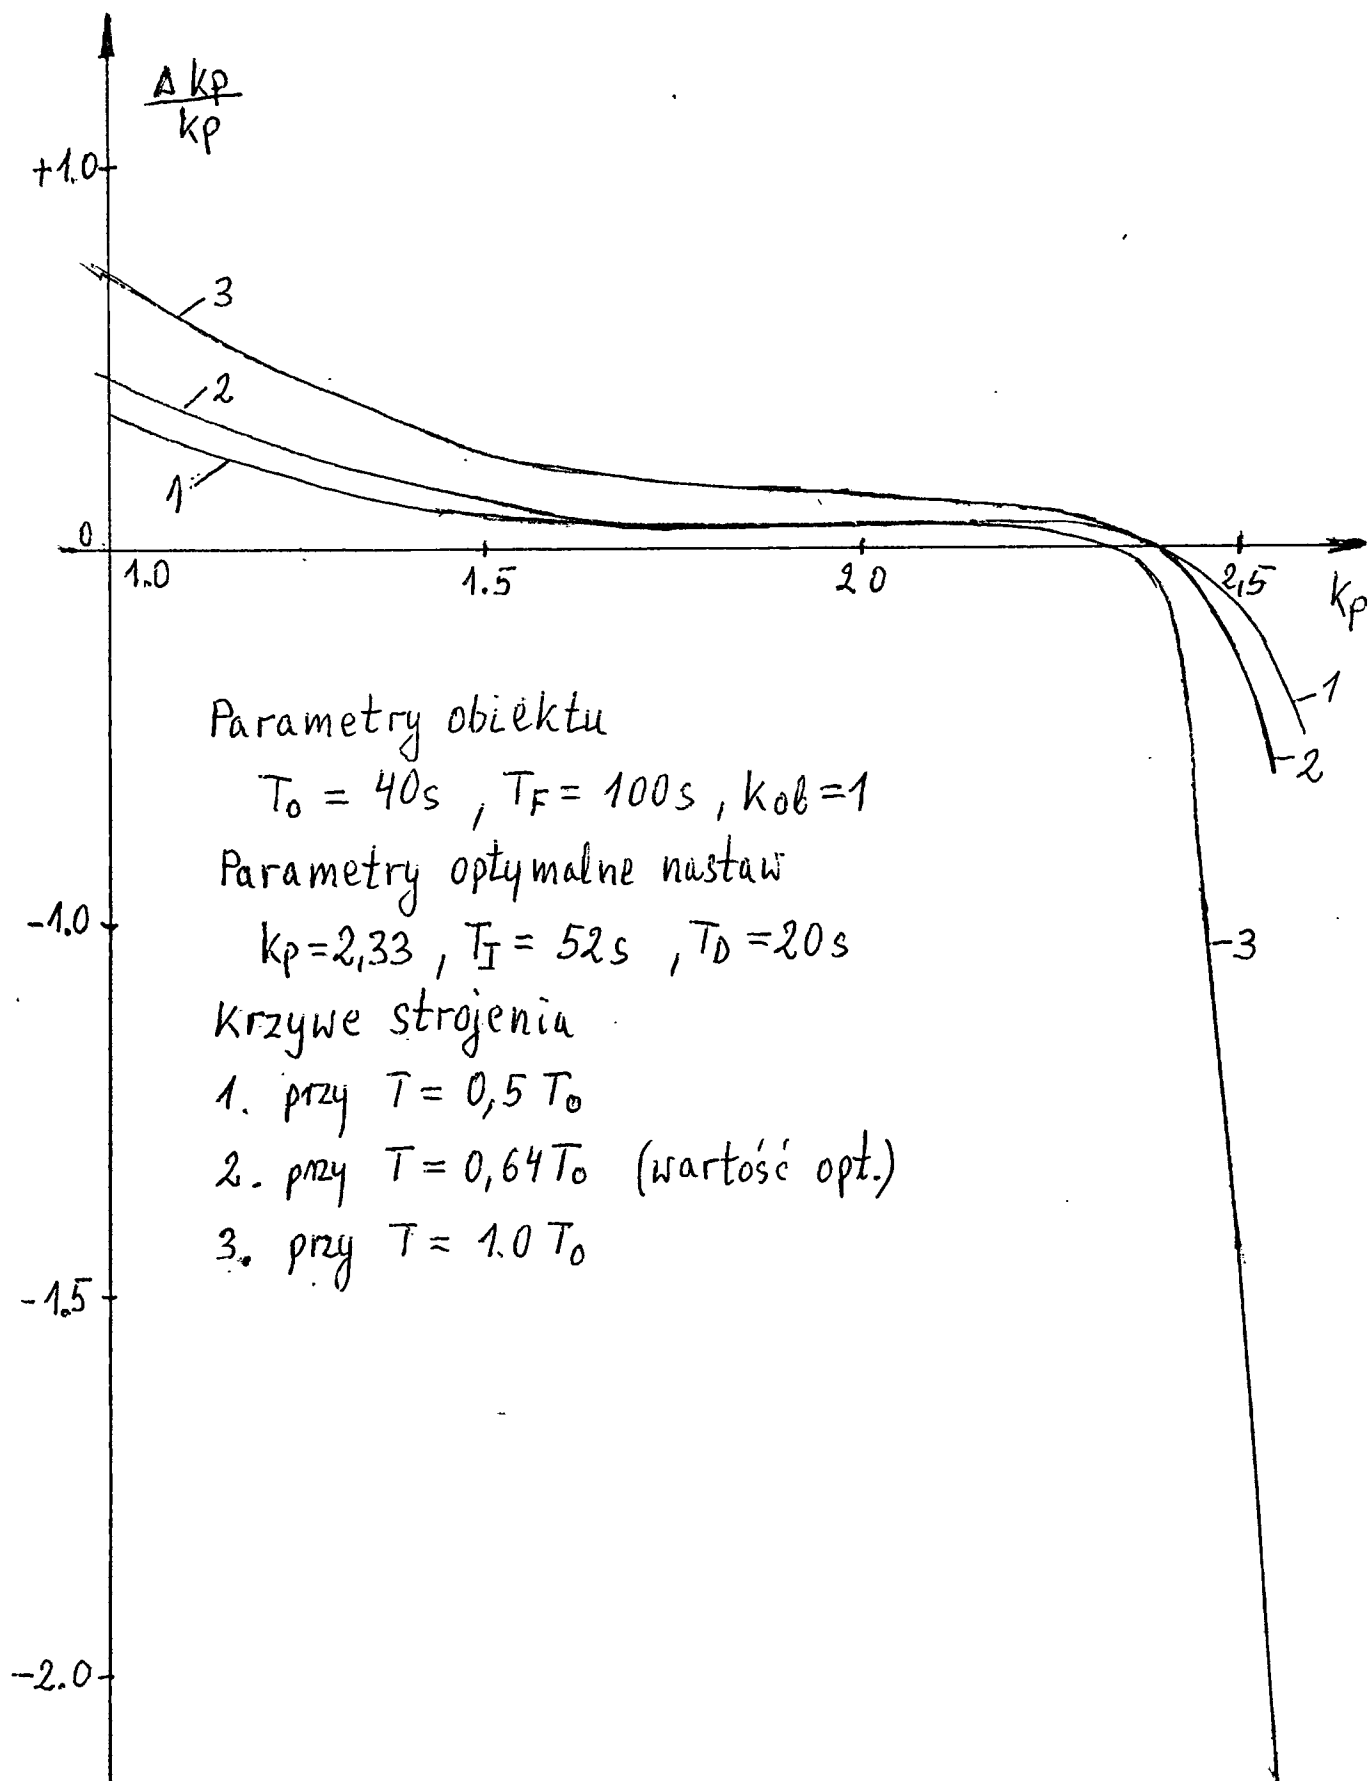 Δ kp
kp
+1.0
3
2
1
0
1.0
1.5
2 0
2,5
kp
1
2
Parametry obiektu
T₀ = 40s , T_F = 100s , kob = 1
Parametry optymalne nastaw
-1.0
kp = 2,33 , T_I = 52s , T_D = 20s
3
Krzywe strojenia
1. przy T = 0,5 T₀
2. przy T = 0,64 T₀ (wartość opt.)
3. przy T = 1.0 T₀
-1.5
-2.0